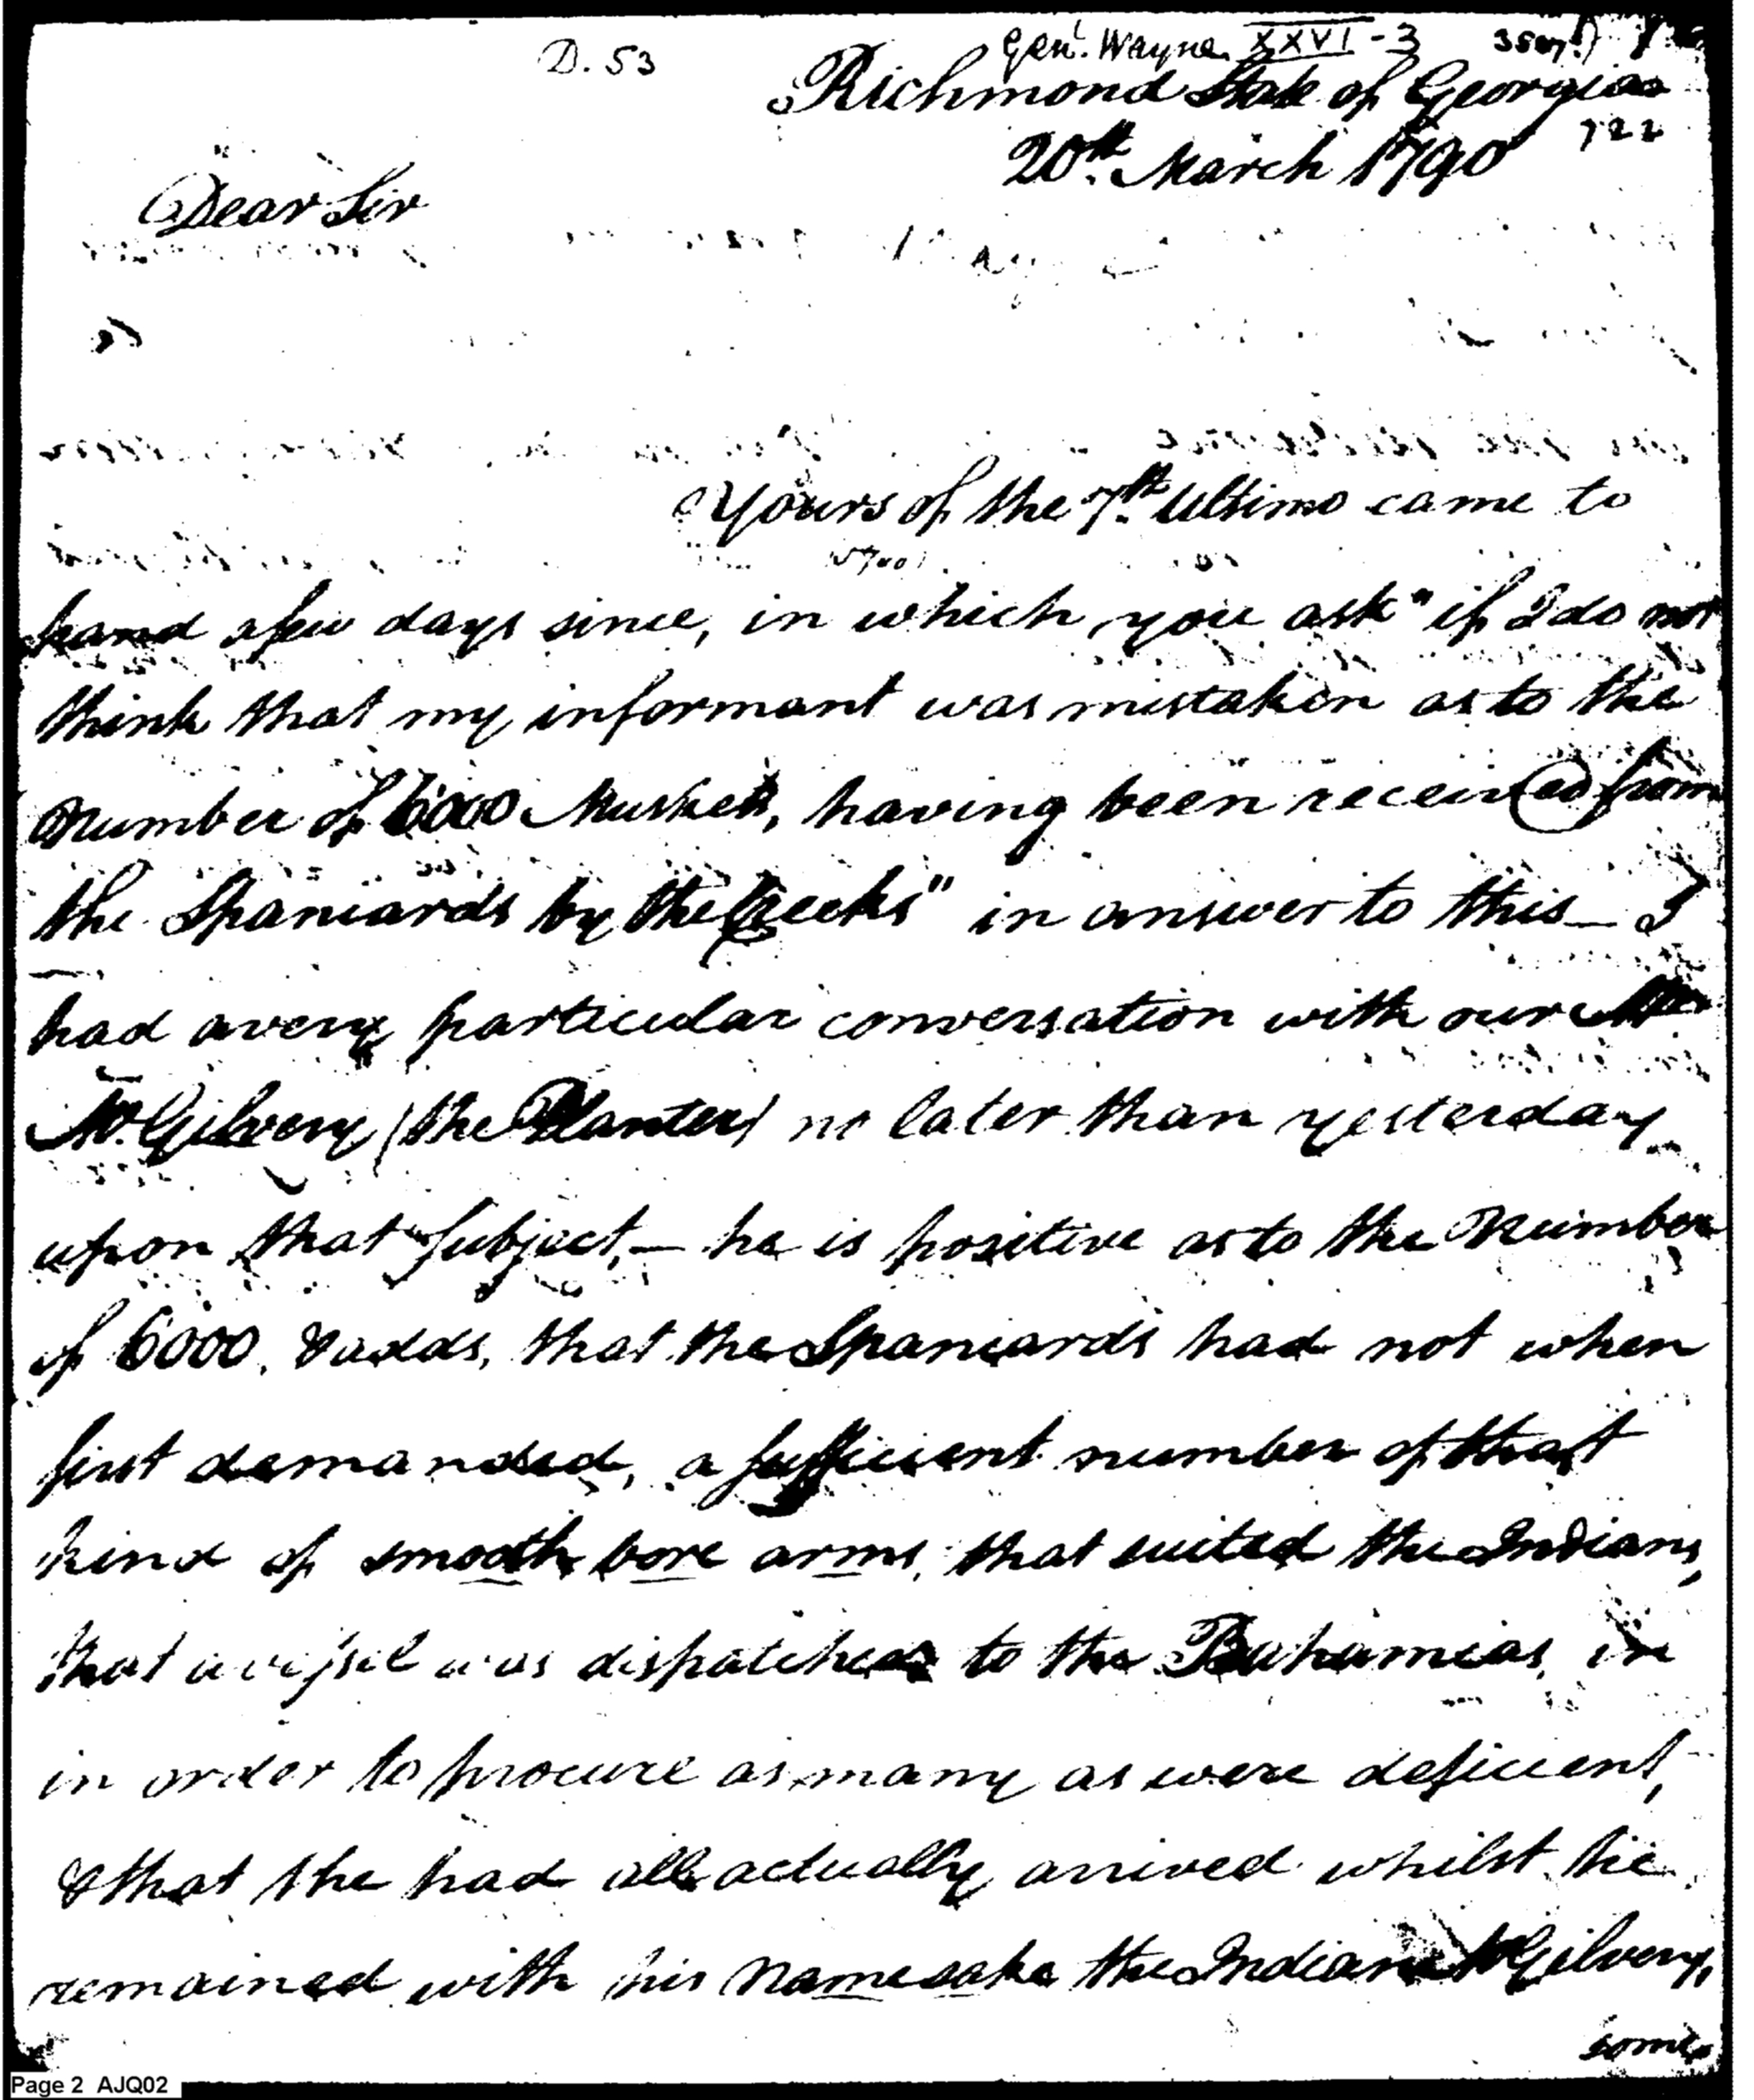 D. 53
Genl. Wayne XXVI - 3
Richmond State of Georgia
722
20th. March 1790
Dear Sir
Yours of the 7th. Ultimo came to
hand a few days since, in which you ask "if I do not
think that my informant was mistaken as to the
Number of 6000 Muskets, having been received from
the Spaniards by the Creeks" in answer to this— I
had a very particular conversation with our Mr
McGilvery (the Planter) no later than yesterday
upon that Subject,— he is positive as to the Number
of 6000, & adds, that the Spaniards had not when
first demanded, a sufficient number of that
kind of smooth bore arms, that suited the Indians,
that a vessel was dispatched to the Bahamias, in
in order to procure as many as were deficient,
& that she had all actually arrived whilst he
remained with his Namesake the Indian McGilvery,
some
Page 2 AJQ02